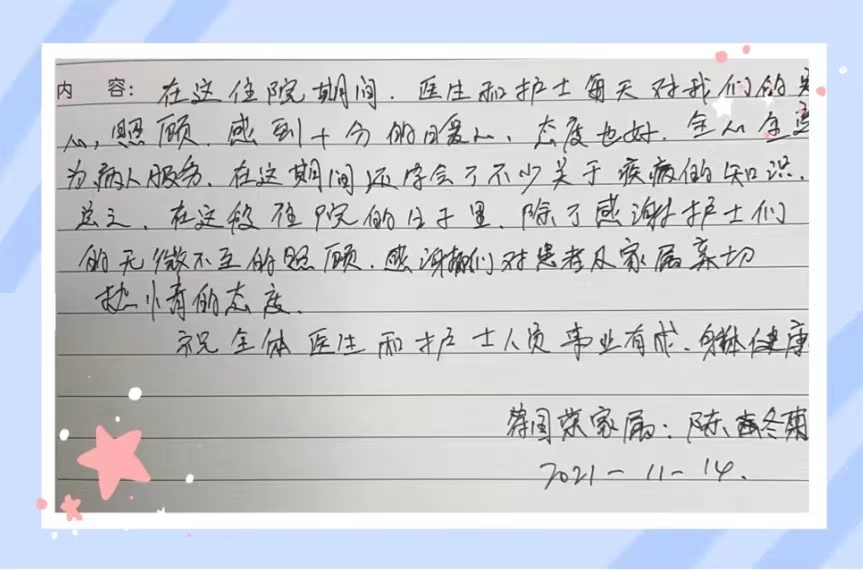 内 容: 在这住院期间. 医生和护士每天对我们的关
心, 照顾. 感到十分的暖心、态度也好. 全心全意
为病人服务. 在这期间还学会了不少关于疾病的知识.
总之. 在这段住院的日子里. 除了感谢护士们
的无微不至的照顾. 感谢她们对患者及家属亲切
热情的态度.
祝全体医生和护士人员事业有成、身体健康
国荣家属: 陈 冬菊
2021-11-14.